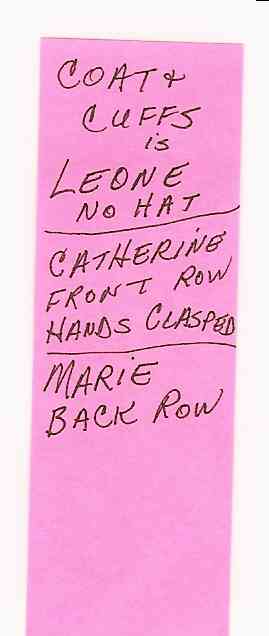 COAT &
CUFFS
is
LEONE
NO HAT
CATHERiNE
FRONT ROW
HANDS CLASPED
MARiE
BACK ROW